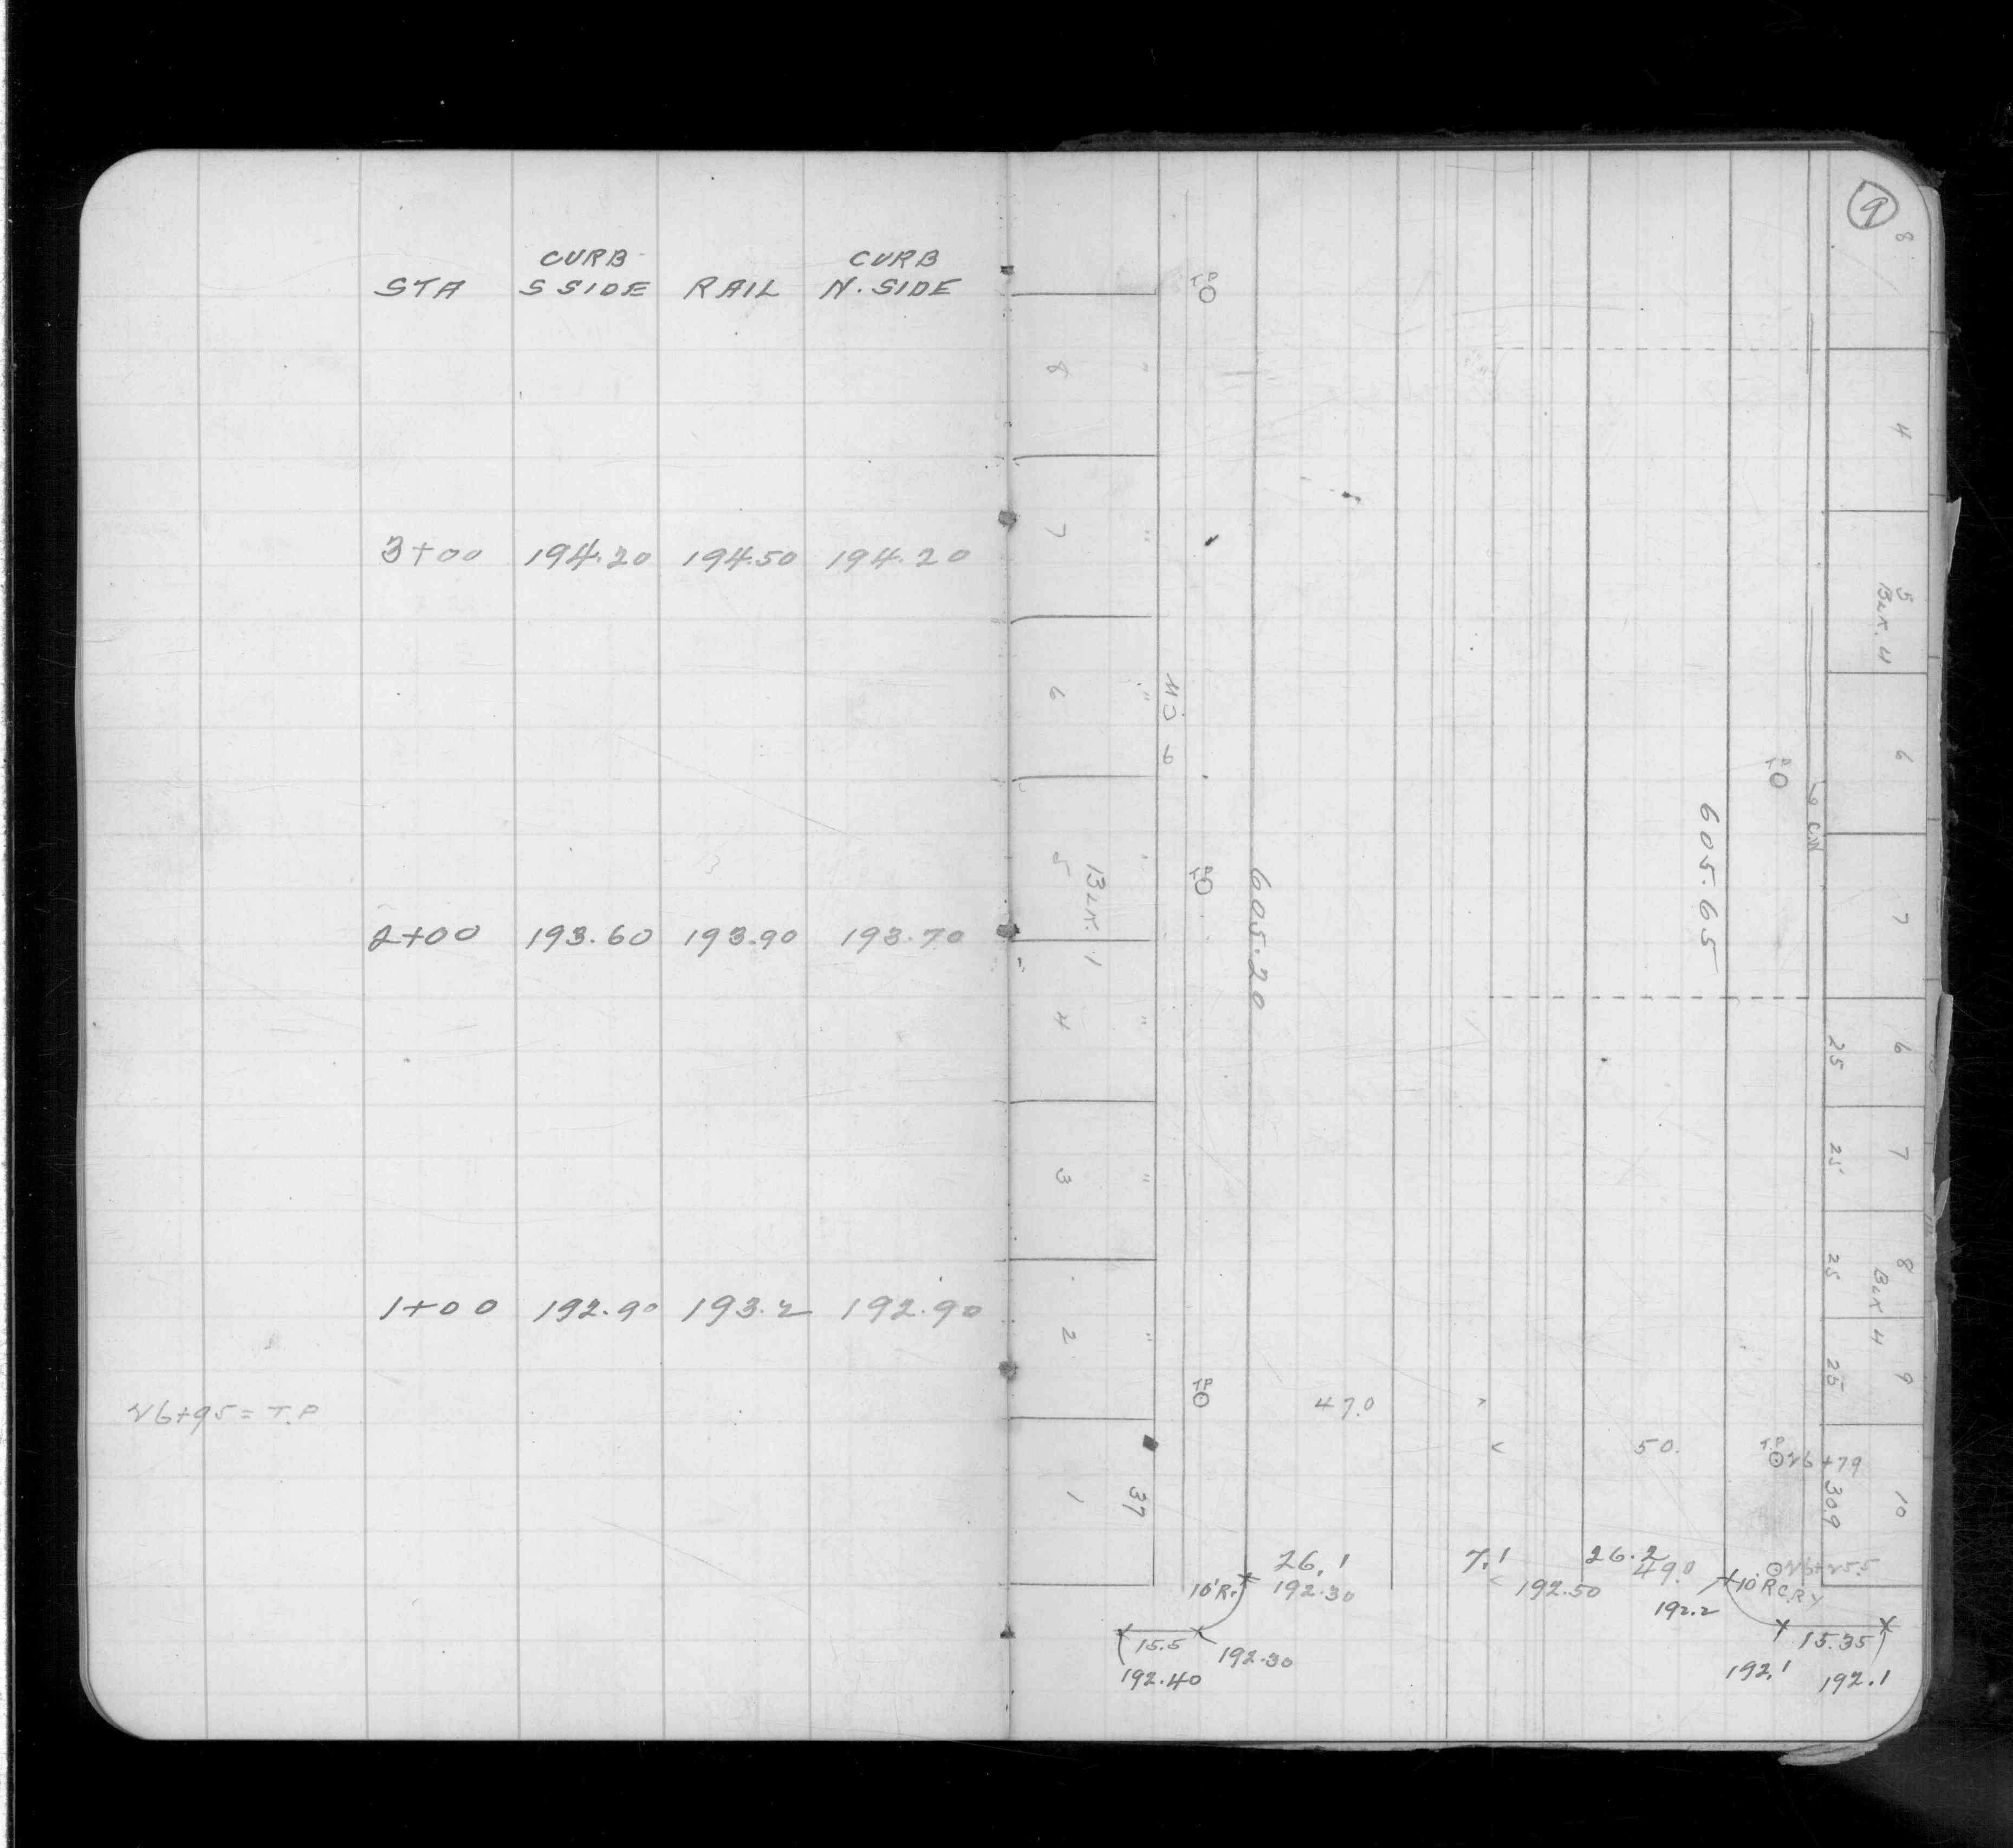 CURB CURB
STA S SIDE RAIL N. SIDE
3+00 194.20 194.50 194.20
2+00 193.60 193.90 193.70
1+00 192.90 193.2 192.90
26+95 = T.P
9
8
TP
8 "
4
7 "
5
BLK. 4
6 "
6
TP
605.65
7
5 "
BLK. 1
TP
605.20
4 "
6
25
7
25
3 "
8
25
BLK 4
2 "
9
25
TP
47.0
50.
T.P
26+79
1
37
30.9
10
26.1
7.1
26.2
49.0
26+25.5
10'R.
192.30
192.50
10'R
192.2
15.5
192.30
192.40
15.35
192.1
192.1